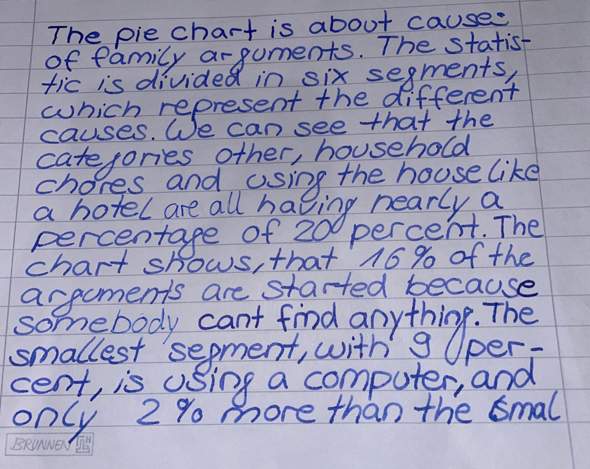 The pie chart is about causes
of family arguments. The statis-
tic is divided in six segments,
which represent the different
causes. We can see that the
categories other, household
chores and using the house like
a hotel are all having nearly a
percentage of 20 percent. The
chart shows, that 16% of the
arguments are started because
somebody cant find anything. The
smallest segment, with 9 per-
cent, is using a computer, and
only 2% more than the smal
BRUNNEN